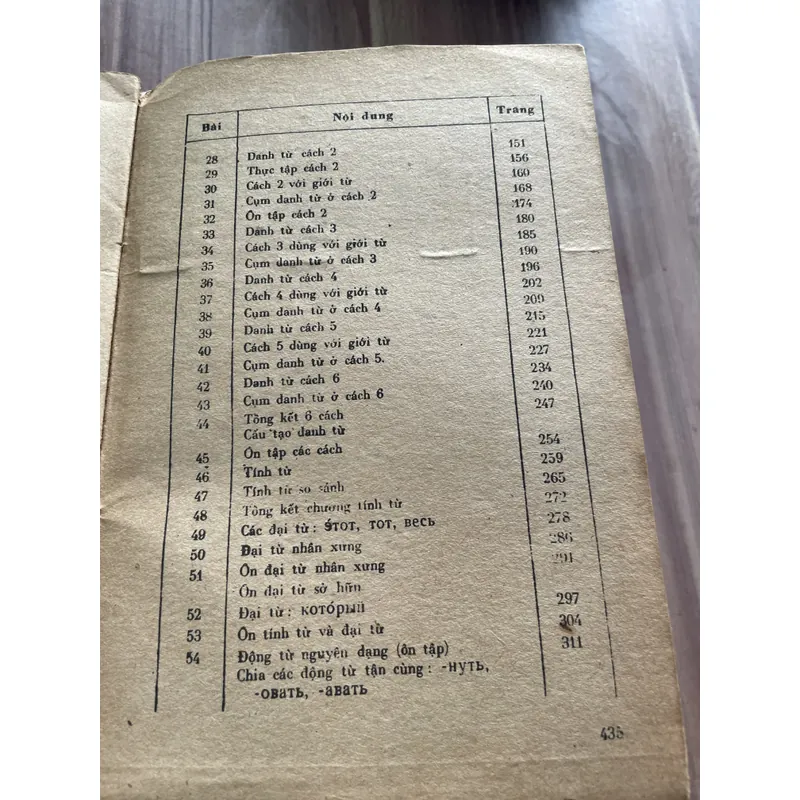 Bài Nội dung Trang
28 Danh từ cách 2 151
29 Thực tập cách 2 156
30 Cách 2 với giới từ 160
31 Cụm danh từ ở cách 2 168
32 Ôn tập cách 2 174
33 Danh từ cách 3 180
34 Cách 3 dùng với giới từ 185
35 Cụm danh từ ở cách 3 190
36 Danh từ cách 4 196
37 Cách 4 dùng với giới từ 202
38 Cụm danh từ ở cách 4 209
39 Danh từ cách 5 215
40 Cách 5 dùng với giới từ 221
41 Cụm danh từ ở cách 5. 227
42 Danh từ cách 6 234
43 Cụm danh từ ở cách 6 240
44 Tổng kết 6 cách 247
Cấu tạo danh từ
45 Ôn tập các cách 254
46 Tính từ 259
47 Tính từ so sánh 265
48 Tổng kết chương tính từ 272
49 Các đại từ : э́тот, тот, весь 278
50 Đại từ nhân xưng 286
51 Ôn đại từ nhân xưng 291
Ôn đại từ sở hữu
52 Đại từ : кото́рый 297
53 Ôn tính từ và đại từ 304
54 Động từ nguyên dạng (ôn tập) 311
Chia các động từ tận cùng : -нуть,
-овать, -авать
435